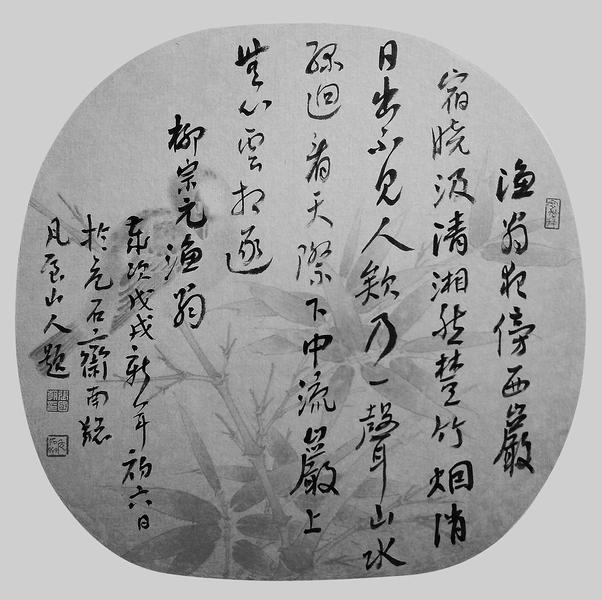 漁翁夜傍西巖
宿曉汲清湘然楚竹烟消
日出不見人欸乃一聲山水
綠迴看天際下中流巖上
無心雲相逐
柳宗元漁翁
歲次戊戌新年初六日
於元石齋南牕
凡山人題